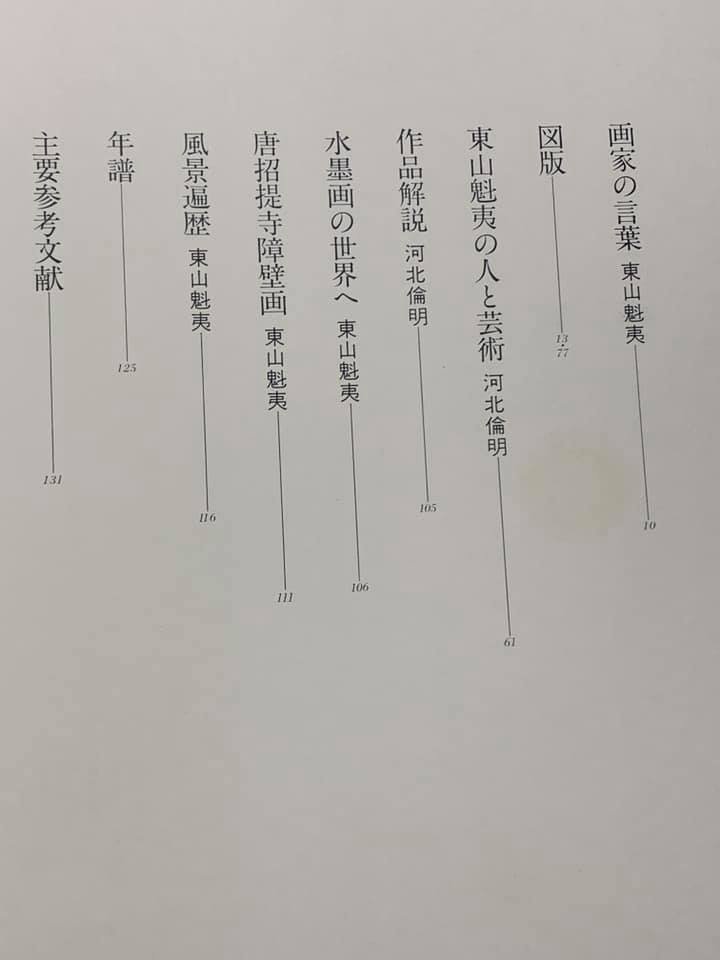 画家の言葉 東山魁夷 10
図版 13・77
東山魁夷の人と芸術 河北倫明 61
作品解説 河北倫明 105
水墨画の世界へ 東山魁夷 106
唐招提寺障壁画 東山魁夷 111
風景遍歴 東山魁夷 116
年譜 125
主要参考文献 131